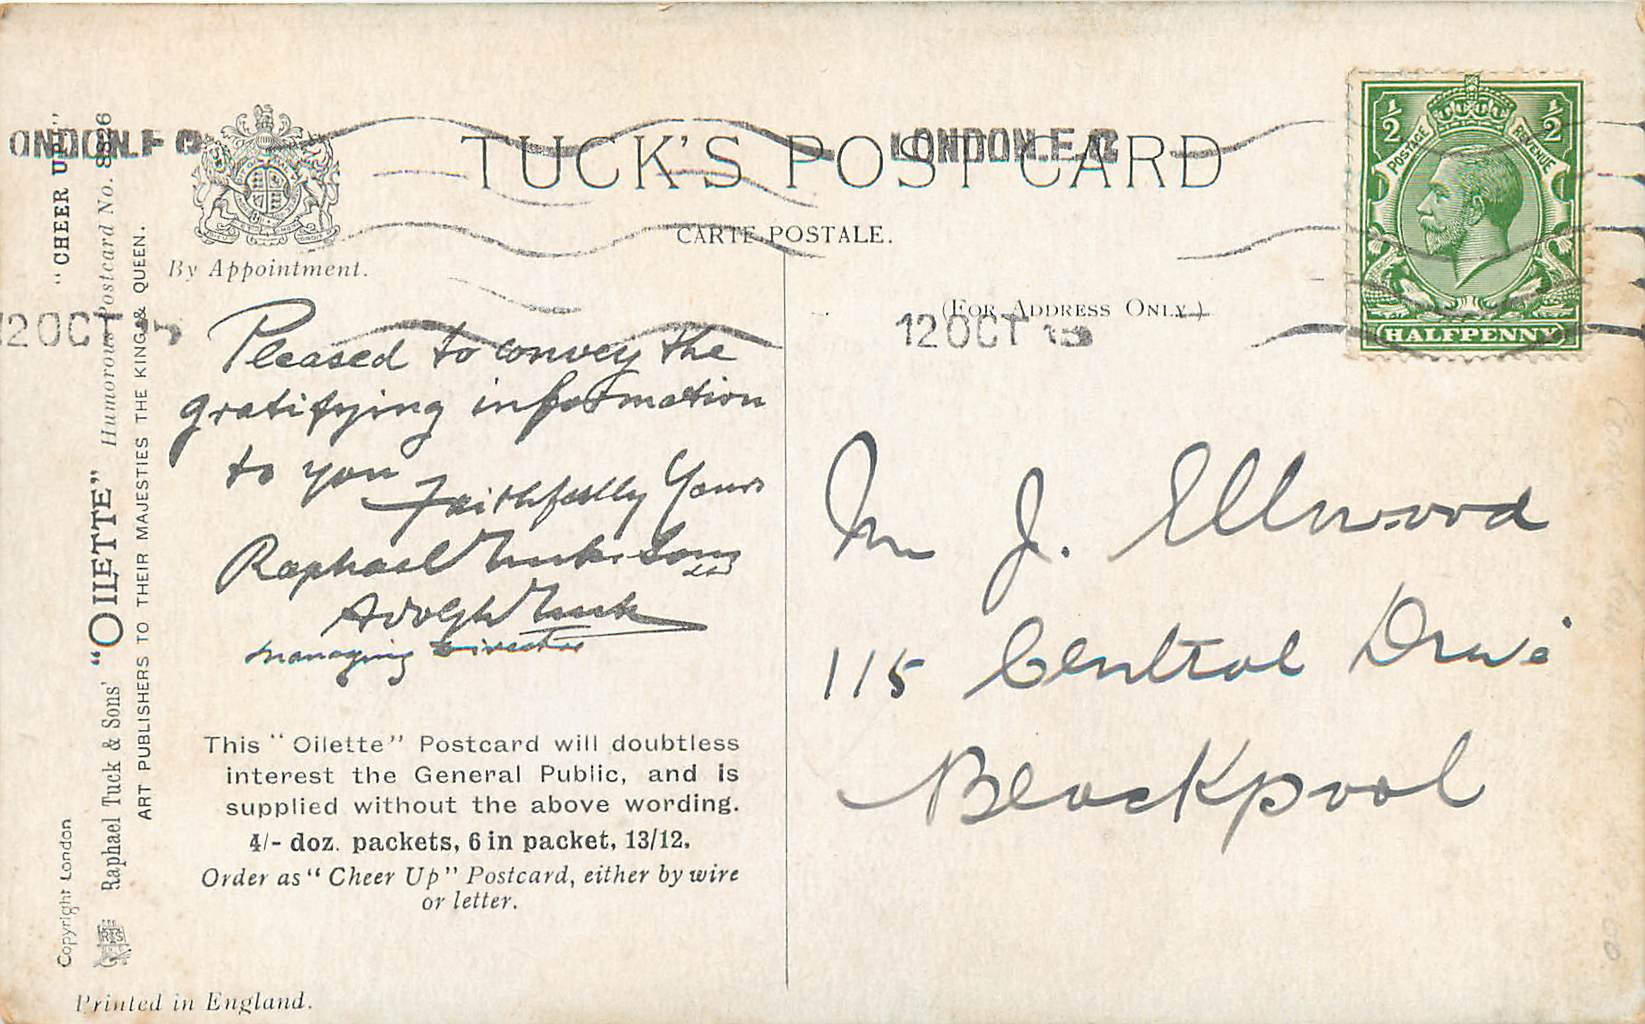 TUCK'S POST CARD
CARTE POSTALE.
By Appointment.
(FOR ADDRESS ONLY.)
LONDON.E.C
12 OCT 15
ONDON.E C
12 OCT 15
1/2 1/2
POSTAGE REVENUE
HALFPENNY
Pleased to convey the
gratifying information
to you
Faithfully Yours
Raphael Tuck & Sons Ltd
Adolph Tuck
Managing Director
This "Oilette" Postcard will doubtless
interest the General Public, and is
supplied without the above wording.
4/- doz. packets, 6 in packet, 13/12.
Order as "Cheer Up" Postcard, either by wire
or letter.
J. Ellwood
115 Central Drive
Blackpool
"CHEER UP"
Copyright London
Raphael Tuck & Sons' "OILETTE" Humorous Postcard No. 8826
ART PUBLISHERS TO THEIR MAJESTIES THE KING & QUEEN.
Printed in England.